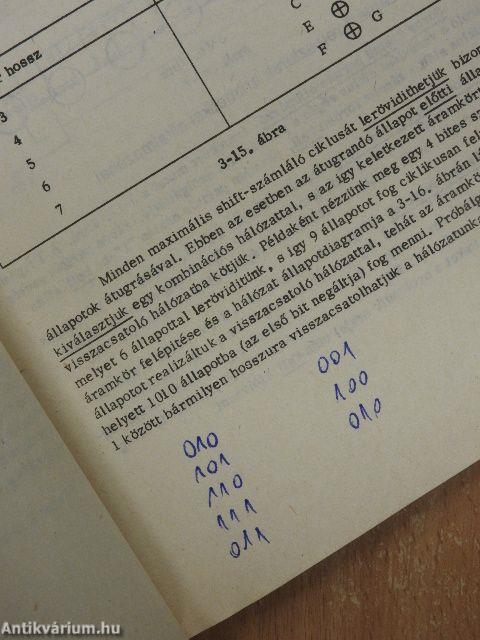 C
E
F G
hossz
3
4
5
6
7
3-15. ábra
Minden maximális shift-számláló ciklusát lerövidithetjük bizon
állapotok átugrásával. Ebben az esetben az átugrandó állapot előtti álla
kiválasztjuk egy kombinációs hálózattal, s az igy keletkezett áramkört
visszacsatoló hálózatba kötjük. Példaként nézzünk meg egy 4 bites s
melyet 6 állapottal lerövidítünk, s igy 9 állapotot fog ciklikusan fel
áramkör felépitése és a hálózat állapotdiagramja a 3-16. ábrán lá
állapotot realizáltuk a visszacsatoló hálózattal, tehát az áramkör
helyett 1010 állapotba (az első bit negáltja) fog menni. Próbálj
1 között bármilyen hosszura visszacsatolhatjuk a hálózatunka
010
101
110
111
011
001
100
010
Antikvárium.hu